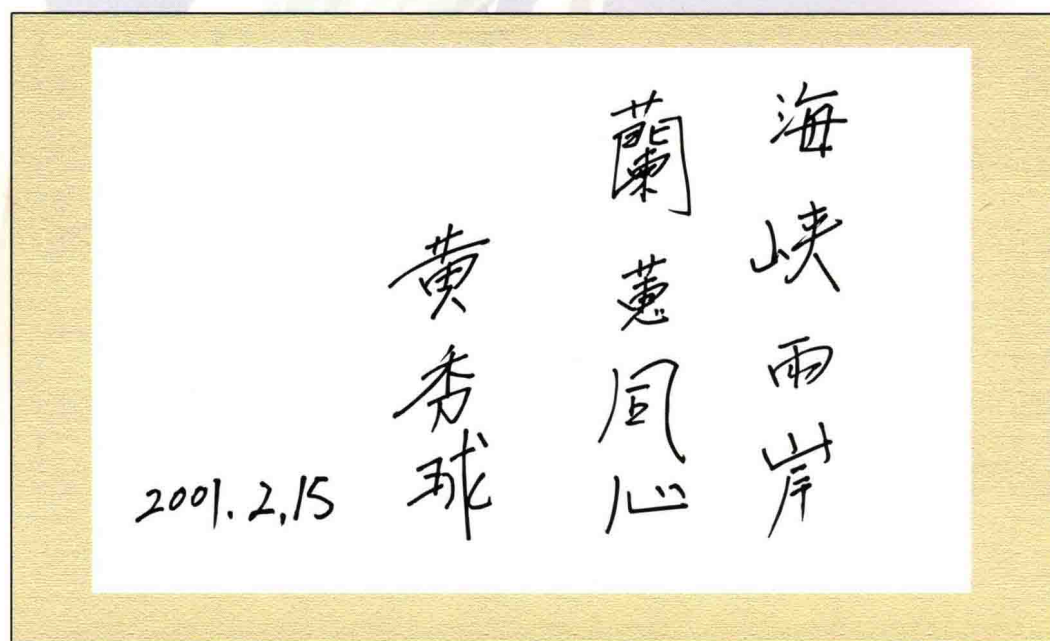 海峡两岸
蘭蕙同心
黄秀球
2001.2.15